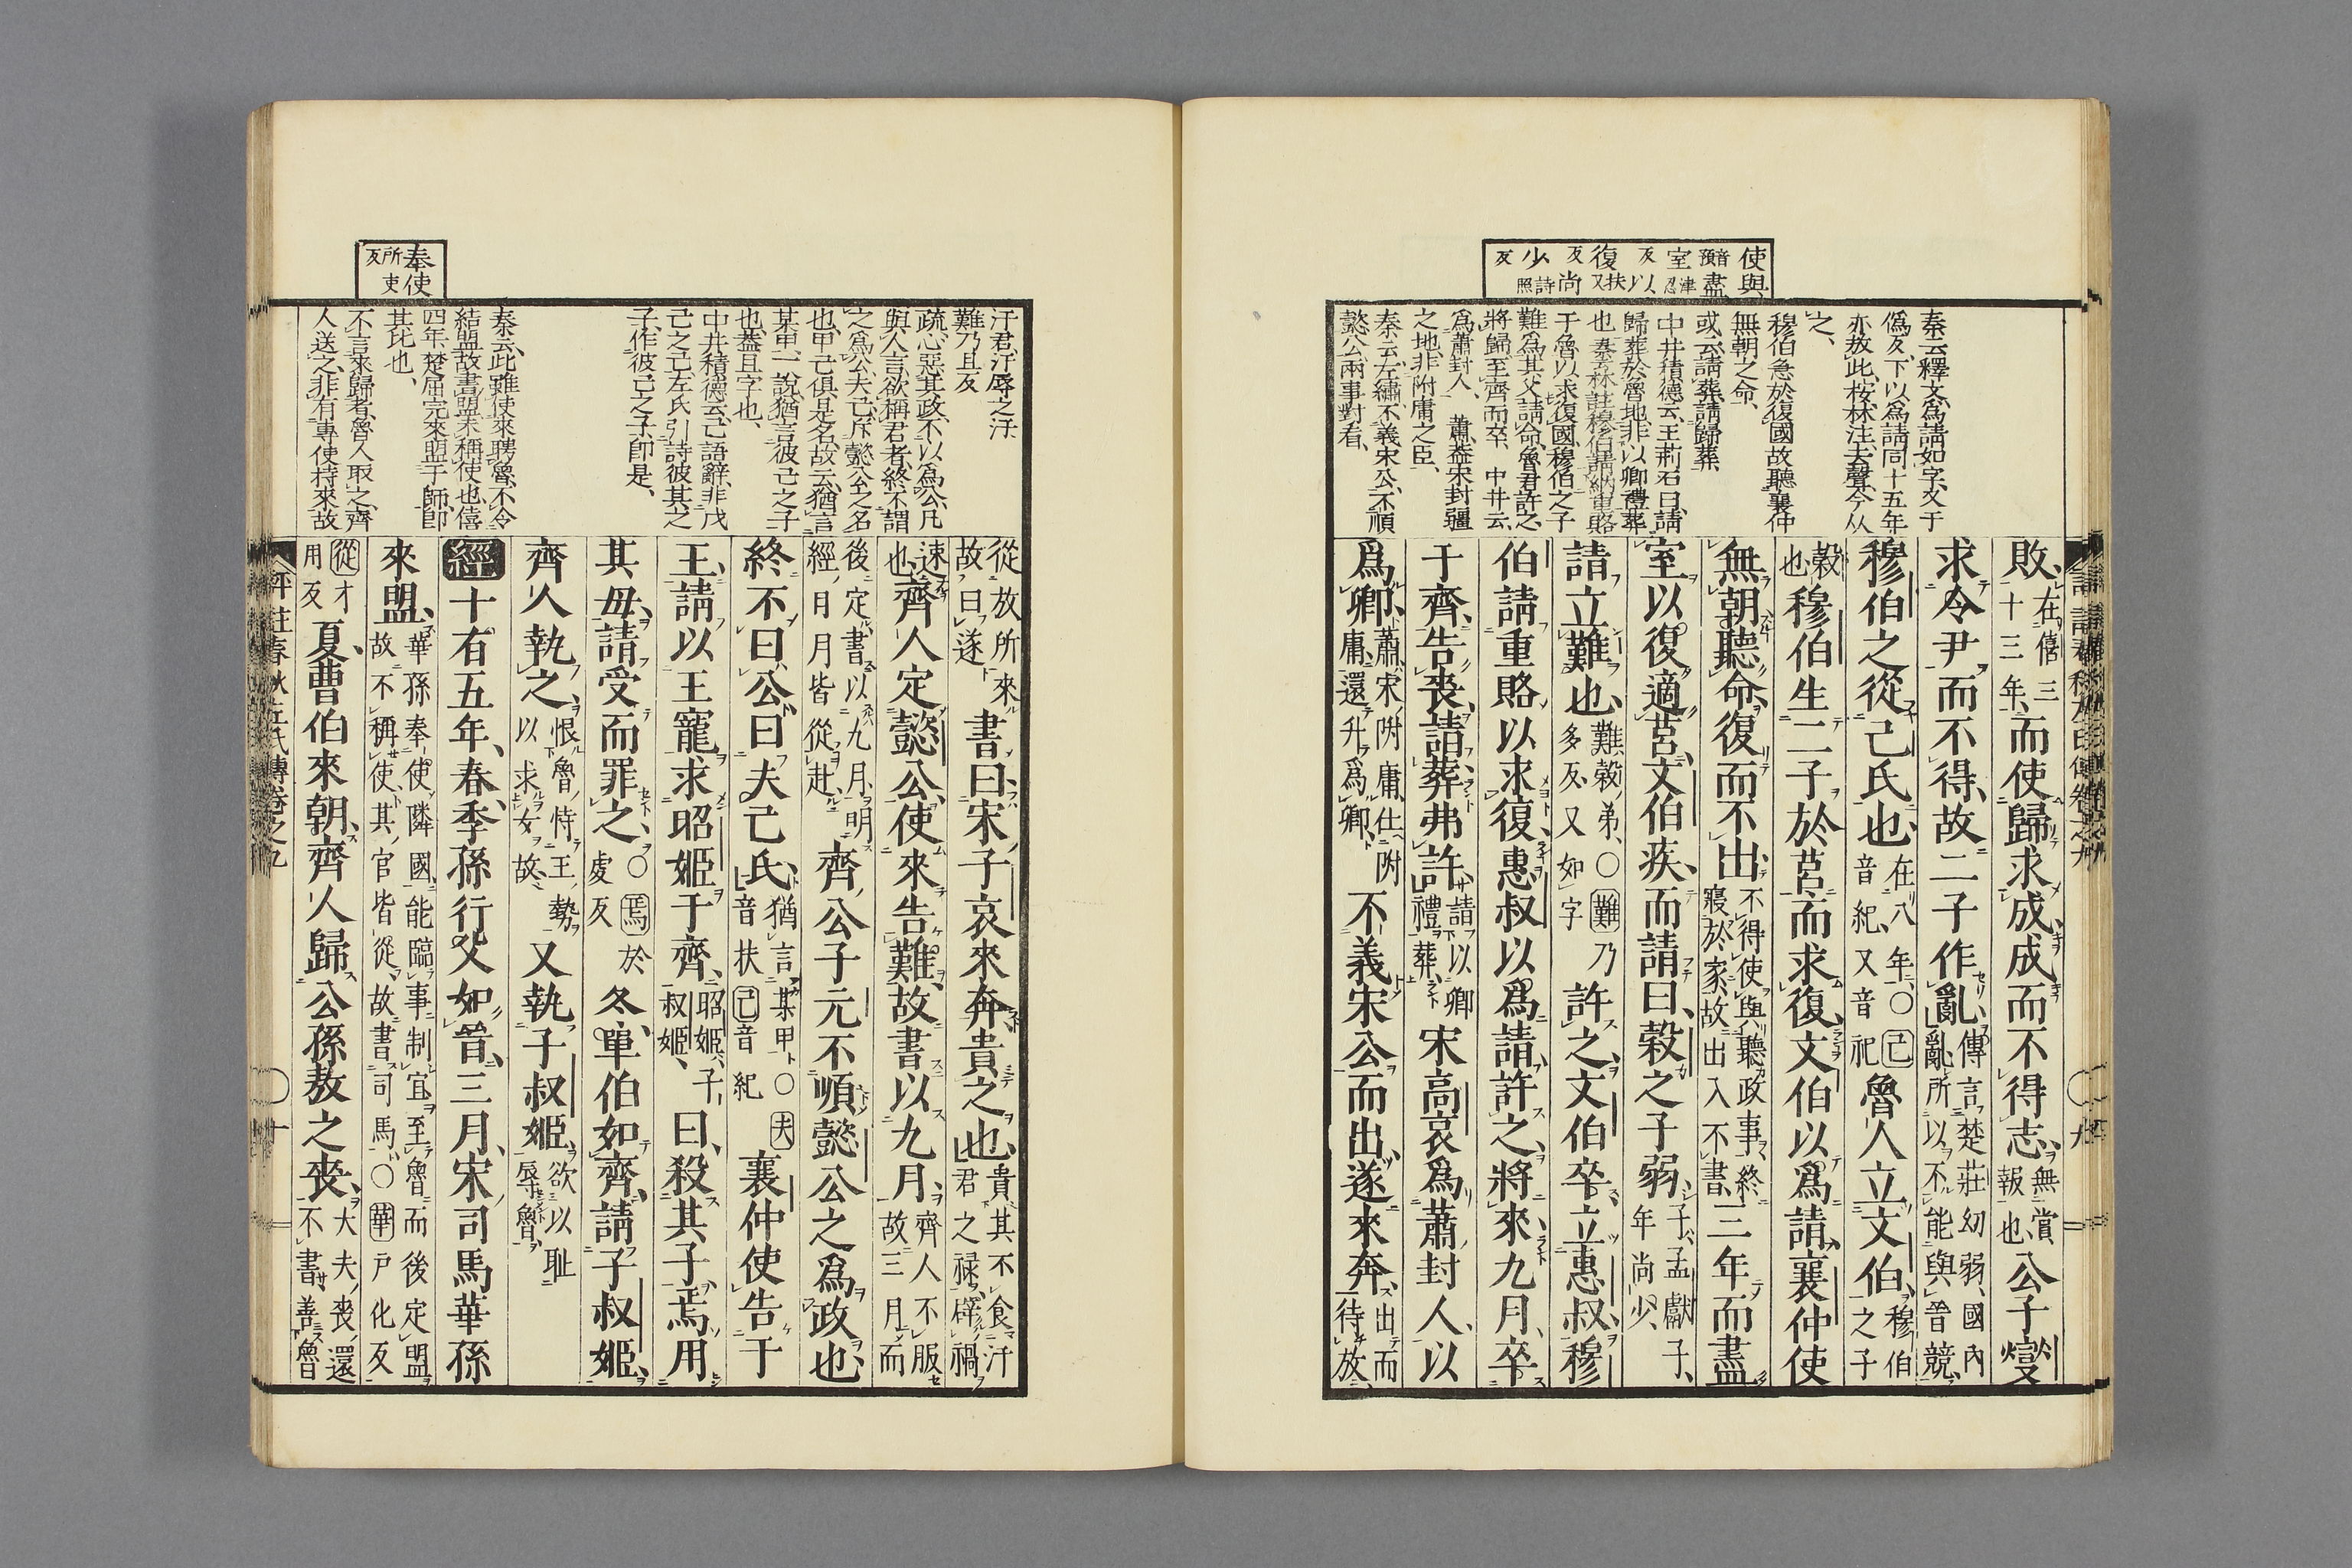 使與
音預盡
室津忍
反以
復扶又
反尚
少詩照
反
秦云釋文爲請如字又于
僞反下以爲請同十五年
亦放此按林注去聲今从
之
穆伯急於復國故聽襄仲
無朝之命
或云請葬請歸葬
中井積德云王荊石曰請
歸葬於魯地非以卿禮葬
也秦云林註穆伯請納重賂
于魯以求復國穆伯之子
難爲其父請命魯君許之
將歸至齊而卒中井云
爲蕭封人蕭蓋宋封疆
之地非附庸之臣
秦云左繡不義宋公不順
懿公兩事對看
敗在僖三十三年而使歸求成成而不得志無賞報也公子燮
求令尹而不得故二子作亂傳言楚莊幼弱國內亂所以不能與晉競
穆伯之從己氏也在八年〇己音紀又音祀魯人立文伯穆伯之子
穀也穆伯生二子於莒而求復文伯以爲請襄仲使
無朝聽命復而不出不得使與聽政事終寢於家故出入不書三年而盡
室以復適莒文伯疾而請曰穀之子弱子孟獻子年尚少
請立難也難穀弟〇難乃多反又如字許之文伯卒立惠叔穆
伯請重賂以求復惠叔以爲請許之將來九月卒
于齊告喪請葬弗許請以卿禮葬宋高哀爲蕭封人以
爲卿蕭宋附庸仕附庸還升爲卿不義宋公而出遂來奔出而待放
奉使
所吏
反
汙君汙辱之汙
難乃旦反
疏心惡其政不以爲公凡
與人言欲稱君者終不謂
之爲公夫己斥懿公之名
也甲己俱是名故云猶言
某甲一說猶言彼己之子
也蓋且字也
中井積德云己語辭非戊
己之己左氏引詩彼其之
子作彼己之子卽是
秦云此雖使來聘魯不令
結盟故書盟未稱使也僖
四年楚屈完來盟于師卽
其比也
不言來歸者魯人取之齊
人送之非有專使持來故
從放所來故曰遂書曰宋子哀來奔貴之也貴其不食汙君之祿辟禍
速也齊人定懿公使來告難故書以九月齊人不服故三月而
後定書以九月明經日月皆從赴齊公子元不順懿公之爲政也
終不曰公曰夫己氏猶言某甲〇夫音扶己音紀襄仲使告于
王請以王寵求昭姬于齊昭姬子叔姬曰殺其子焉用
其母請受而罪之〇焉於處反冬單伯如齊請子叔姬
齊人執之恨魯恃王勢以求女故又執子叔姬欲以恥辱魯
經十有五年春季孫行父如晉三月宋司馬華孫
來盟華孫奉使鄰國能臨事制宜至魯而後定盟故不稱使其官皆從故書司馬〇華戶化反
從才用反夏曹伯來朝齊人歸公孫敖之喪大夫喪還不書善魯
評註春秋左氏傳卷之九
十